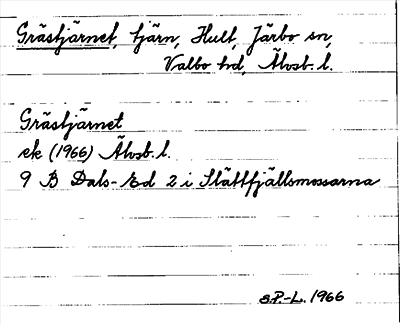 Gråstjärnet, tjärn, Hult, Järbo sn,
Valbo hd, Älvsb. l.
Gråstjärnet
ek (1966) Älvsb. l.
9 B Dals-Ed 2 i Slättfjällsmossarna
S.P.-L. 1966